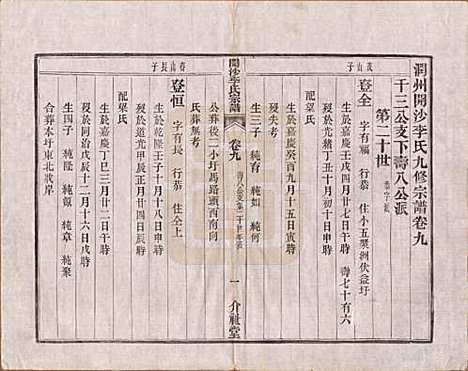 潤州開沙李氏九修宗譜卷九
千三公支下壽八公派
第二十世
茂山子
登全 字有福 行恭 住全小五聚洲伏益圩
生於嘉慶甲戌年四月廿七日午時 壽七十有六
歿於光緒丁丑年十月初十日申時
配單氏
生於嘉慶癸酉年九月十五日寅時
歿失考
生三子 純育 純如 純何
公葬後二小圩馬路頭西南向
氏葬無考
開沙李氏宗譜
卷九
一 介祉堂
春山長子
登恒 字有長 行恭 住全上
生於乾隆壬子年十月十八日辰時
歿於道光甲辰年正月廿四日辰時
配單氏
生於嘉慶丁巳年三月廿二日酉時
歿於同治戊辰年十二月十六日戌時
生四子 純隆 純煩 純章 純聚
合葬本圩東北戚岸